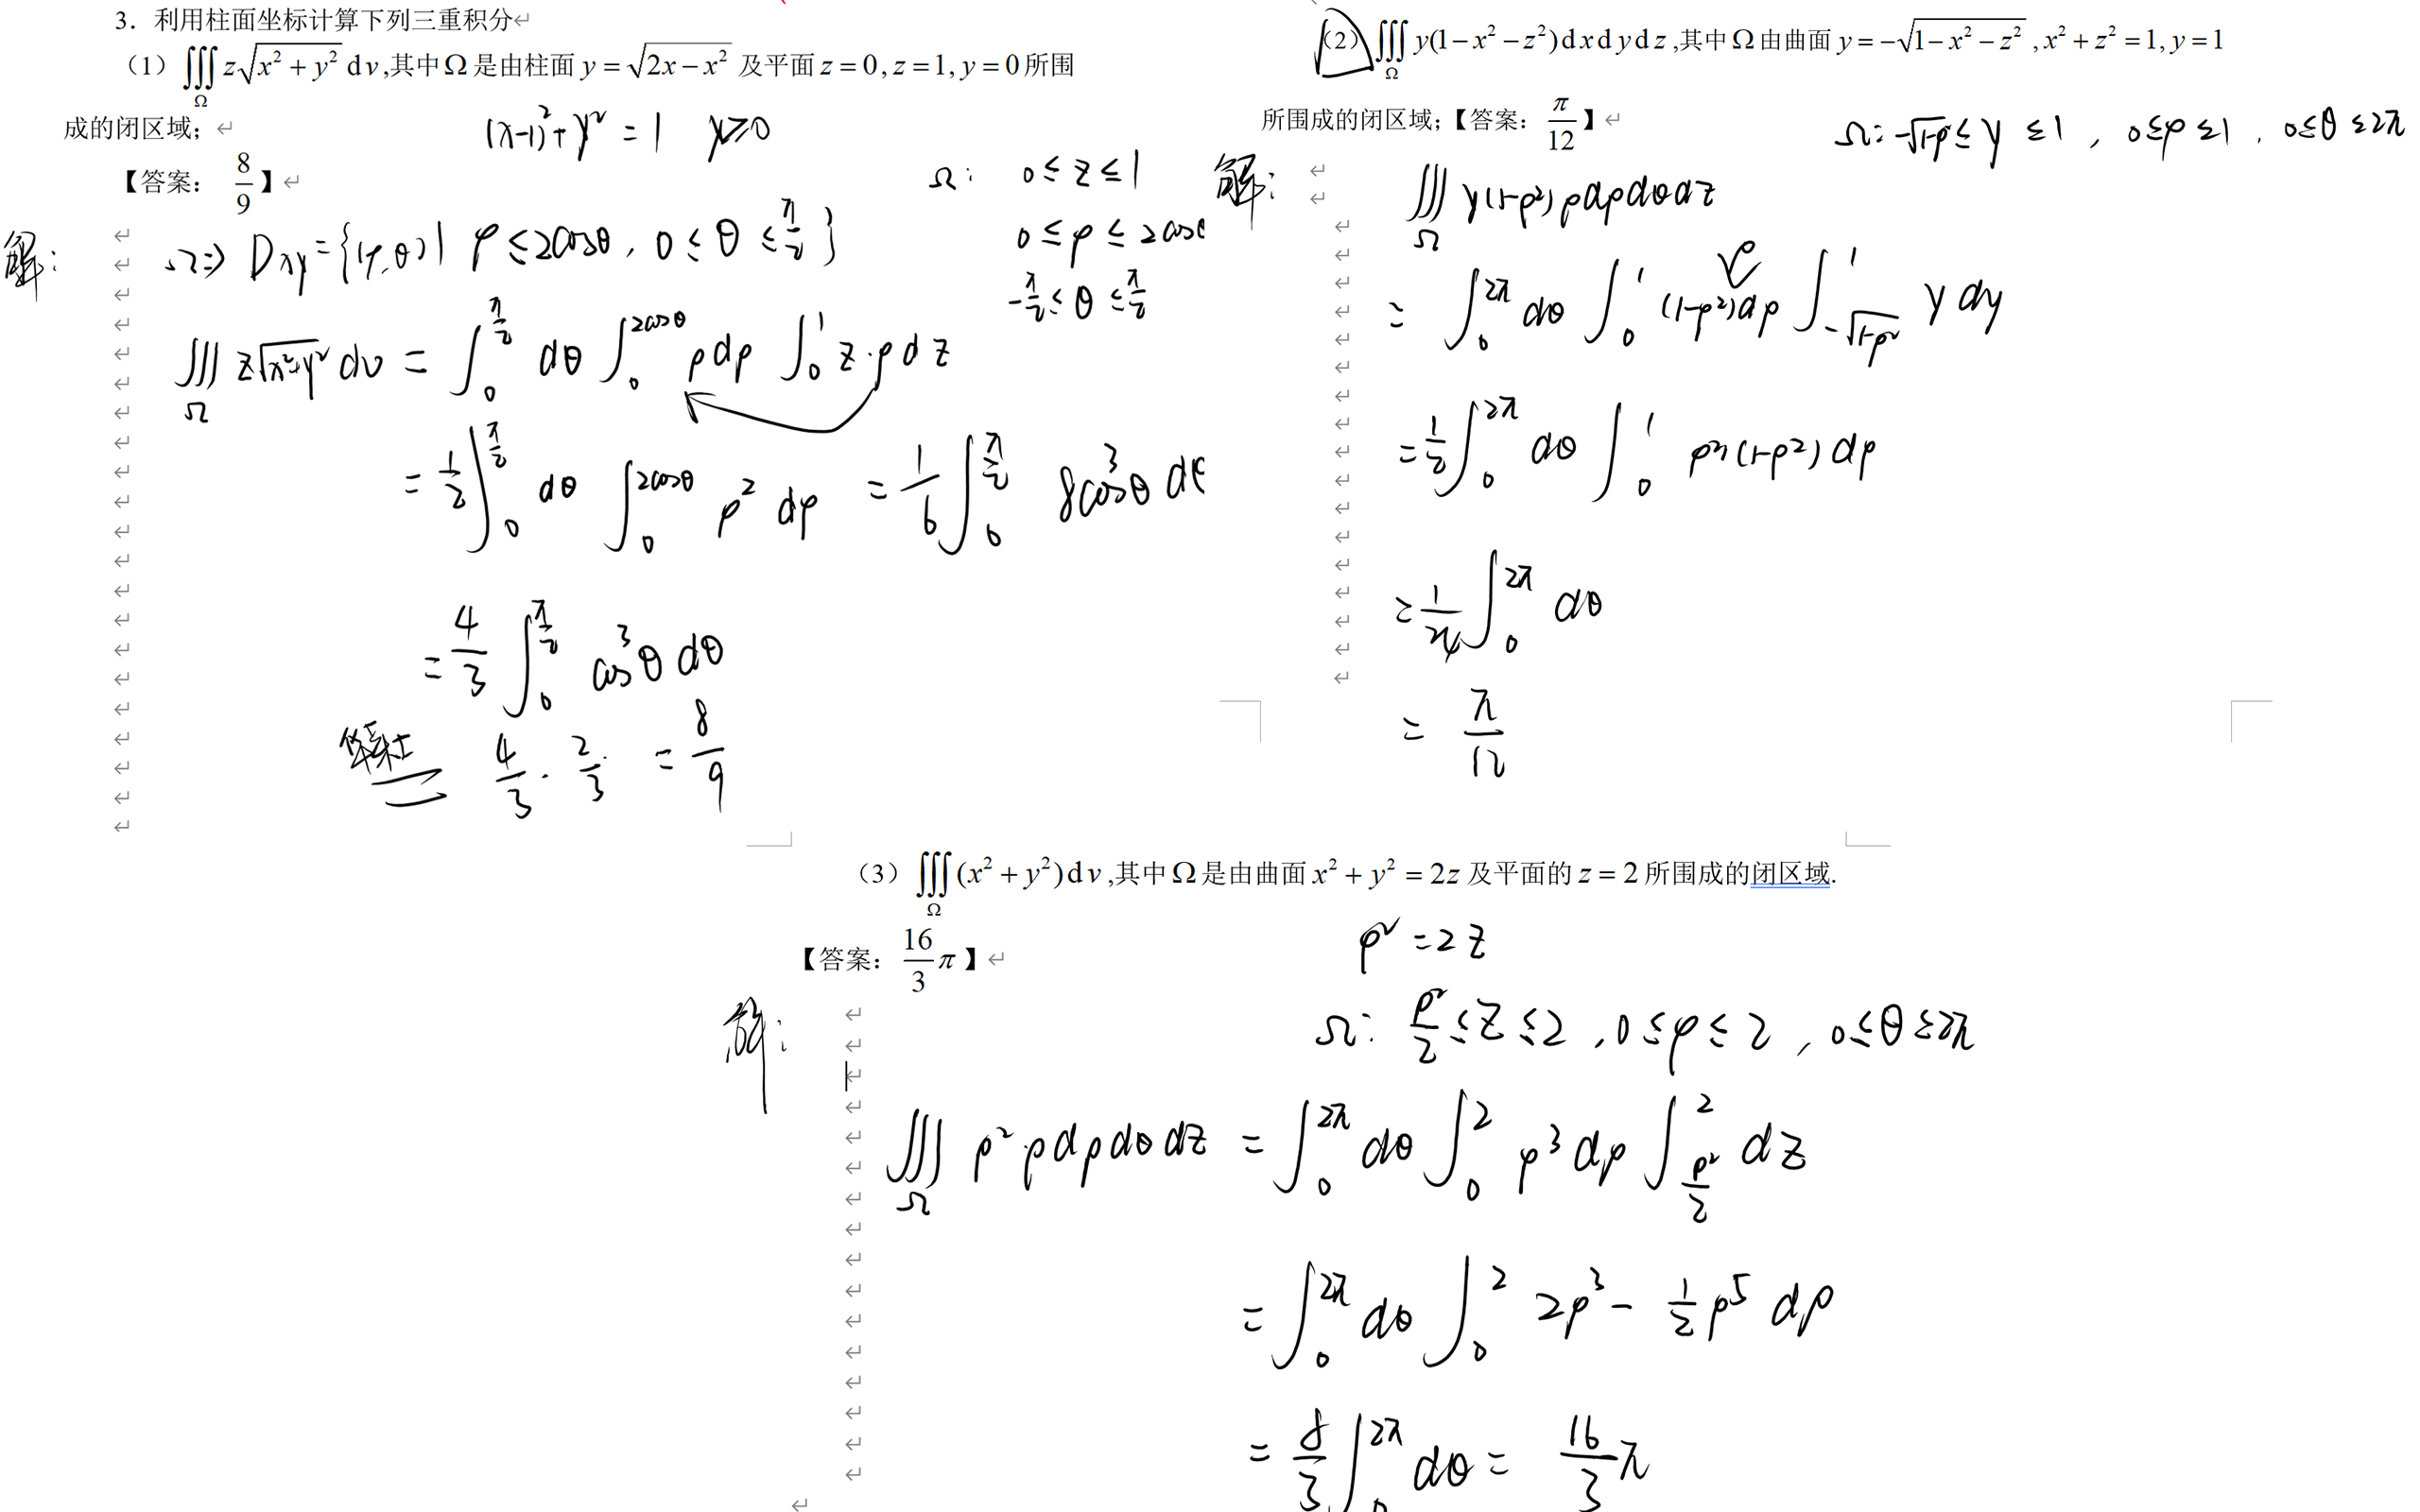 3. 利用柱面坐标计算下列三重积分
(1) ∭_Ω z√(x²+y²) dv,其中Ω是由柱面 y=√(2x−x²) 及平面 z=0, z=1, y=0 所围
成的闭区域;
(x-1)²+y²=1 y≥0
【答案: 8/9】
Ω: 0≤z≤1
0≤ρ≤2cosθ
-π/2≤θ≤π/2
解:
Ω⇒ Dxy={(ρ,θ)| ρ≤2cosθ, 0≤θ≤π/2}
∭_Ω z√(x²+y²) dv = ∫_0^{π/2} dθ ∫_0^{2cosθ} ρdρ ∫_0^1 z·ρdz
= 1/2 ∫_0^{π/2} dθ ∫_0^{2cosθ} ρ² dρ = 1/6 ∫_0^{π/2} 8cos³θ d
= 4/3 ∫_0^{π/2} cos³θ dθ
4/3 · 2/3 = 8/9
(2) ∭_Ω y(1−x²−z²)dxdydz,其中Ω由曲面 y=−√(1−x²−z²), x²+z²=1, y=1
所围成的闭区域;【答案: π/12】
Ω: -√(1-ρ)≤y≤1, 0≤ρ≤1, 0≤θ≤2π
解:
∭_Ω y(1-ρ²)ρdρdθdz
= ∫_0^{2π} dθ ∫_0^1 ρ(1-ρ²)dρ ∫_{-√(1-ρ²)}^1 y dy
= 1/2 ∫_0^{2π} dθ ∫_0^1 ρ³(1-ρ²)dρ
= 1/24 ∫_0^{2π} dθ
= π/12
(3) ∭_Ω (x²+y²)dv,其中Ω是由曲面 x²+y²=2z 及平面的 z=2 所围成的闭区域.
【答案: 16/3 π】
ρ²=2z
解:
Ω: ρ²/2≤z≤2, 0≤ρ≤2, 0≤θ≤2π
∭_Ω ρ²·ρdρdθdz = ∫_0^{2π} dθ ∫_0^2 ρ³dρ ∫_{ρ²/2}^2 dz
= ∫_0^{2π} dθ ∫_0^2 2ρ³ - 1/2 ρ⁵ dρ
= 8/3 ∫_0^{2π} dθ = 16/3 π